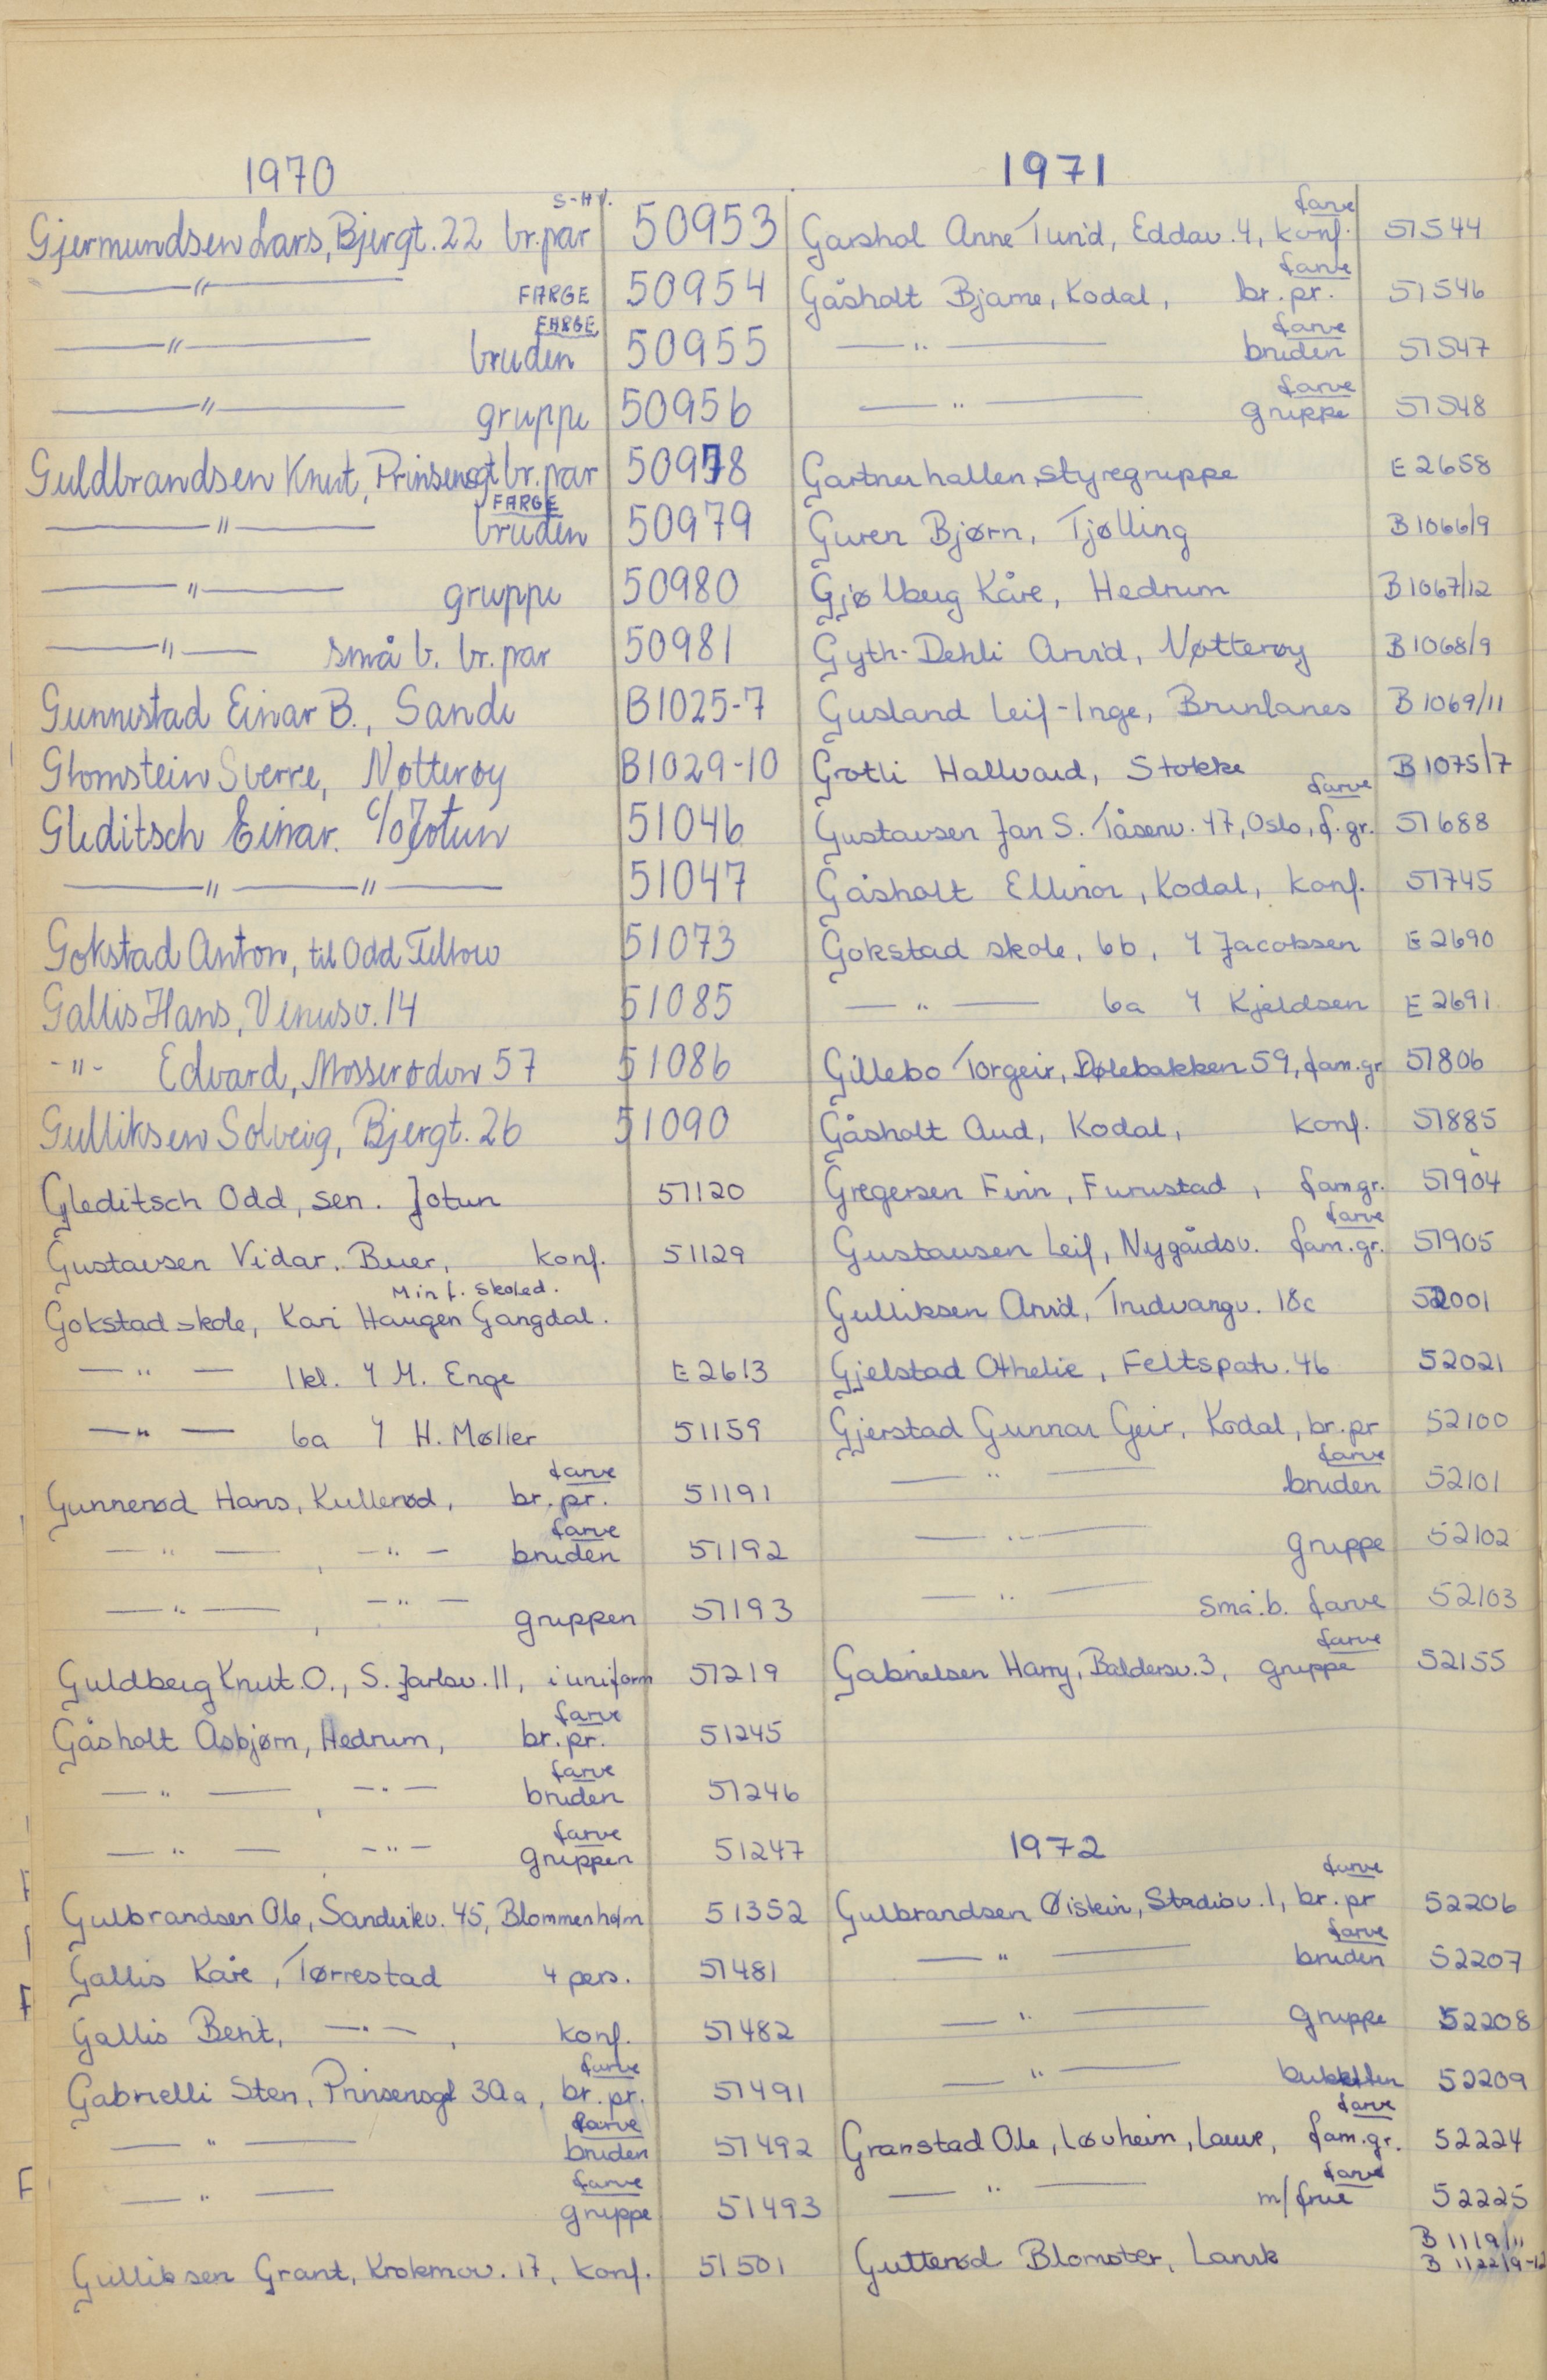 1970
S-HV.
Gjermundsen Lars, Bjergt. 22 br.par 50953
—〃— FARGE 50954
FARGE
—〃— bruden 50955
—〃— gruppe 50956
Guldbrandsen Knut, Prinsensgt br.par 50978
FARGE
—〃— bruden 50979
—〃— gruppe 50980
—〃— små b. br.par 50981
Gunnestad Einar B., Sande B1025-7
Glomstein Sverre, Nøtterøy B1029-10
Gleditsch Einar. c/o Jotun 51046
—〃—〃— 51047
Gokstad Anton, til Odd Fellow 51073
Gallis Hans, Venusv. 14 51085
-〃- Edvard, Mosserødvn 57 51086
Gulliksen Solveig, Bjergt. 26 51090
Gleditsch Odd, sen. Jotun 51120
Gustavsen Vidar, Buer, konf. 51129
Min f. skoled.
Gokstad skole, Kari Haugen Gangdal.
—〃— 1kl. M. Enge E 2613
—〃— 6a H. Møller 51159
farve
Gunnerød Hans, Kullerød, br.pr. 51191
farve
—〃—, —〃— bruden 51192
—〃—, —〃— gruppen 51193
Guldberg Knut O., S. Jarlsv. 11, i uniform 51219
farve
Gåsholt Asbjørn, Hedrum, br.pr. 51245
farve
—〃—, —〃— bruden 51246
farve
—〃—, —〃— gruppen 51247
Gulbrandsen Ole, Sandvikv. 45, Blommenholm 51352
Gallis Kåre, Tørrestad 4 pers. 51481
Gallis Berit, —〃—, konf. 51482
farve
Gabrielli Sten, Prinsensgt 30a, br.pr. 51491
farve
—〃— bruden 51492
farve
—〃— gruppe 51493
Gulliksen Grant, Krokmov. 17, konf. 51501
1971
farve
Garshol Anne Turid, Eddav. 4, konf. 51544
farve
Gåsholt Bjarne, Kodal, br.pr. 51546
farve
—〃— bruden 51547
farve
—〃— gruppe 51548
Gartnerhallen, styregruppe E 2658
Guren Bjørn, Tjølling B 1066/9
Gjølberg Kåre, Hedrum B 1067/12
Gyth-Dehli Arvid, Nøtterøy B 1068/9
Gusland Leif-Inge, Brunlanes B 1069/11
Grotli Hallvard, Stokke B 1075/7
farve
Gustavsen Jan S. Tåsenv. 47, Oslo, f.gr. 51688
Gåsholt Ellinor, Kodal, konf. 51745
Gokstad skole, 6b, Jacobsen E 2690
—〃— 6a Kjeldsen E 2691
Gillebo Torgeir, Dølebakken 59, fam.gr 51806
Gåsholt Aud, Kodal, konf. 51885
Gregersen Finn, Furustad, fam.gr. 51904
farve
Gustavsen Leif, Nygårdsv. fam.gr. 51905
Gulliksen Arvid, Trudvangv. 18c 52001
Gjelstad Othelie, Feltspatv. 46 52021
Gjerstad Gunnar Geir, Kodal, br.pr 52100
farve
—〃— bruden 52101
—〃— gruppe 52102
—〃— små.b. farve 52103
farve
Gabrielsen Harry, Baldersv. 3, gruppe 52155
1972
farve
Gulbrandsen Øistein, Stadiov. 1, br.pr 52206
farve
—〃— bruden 52207
—〃— gruppe 52208
—〃— buketten 52209
farve
Granstad Ole, Løvheim, Lauve, fam.gr. 52224
farve
—〃— m/frue 52225
Gutterød Blomster, Larvik B 1119/11
B 1122/9-12